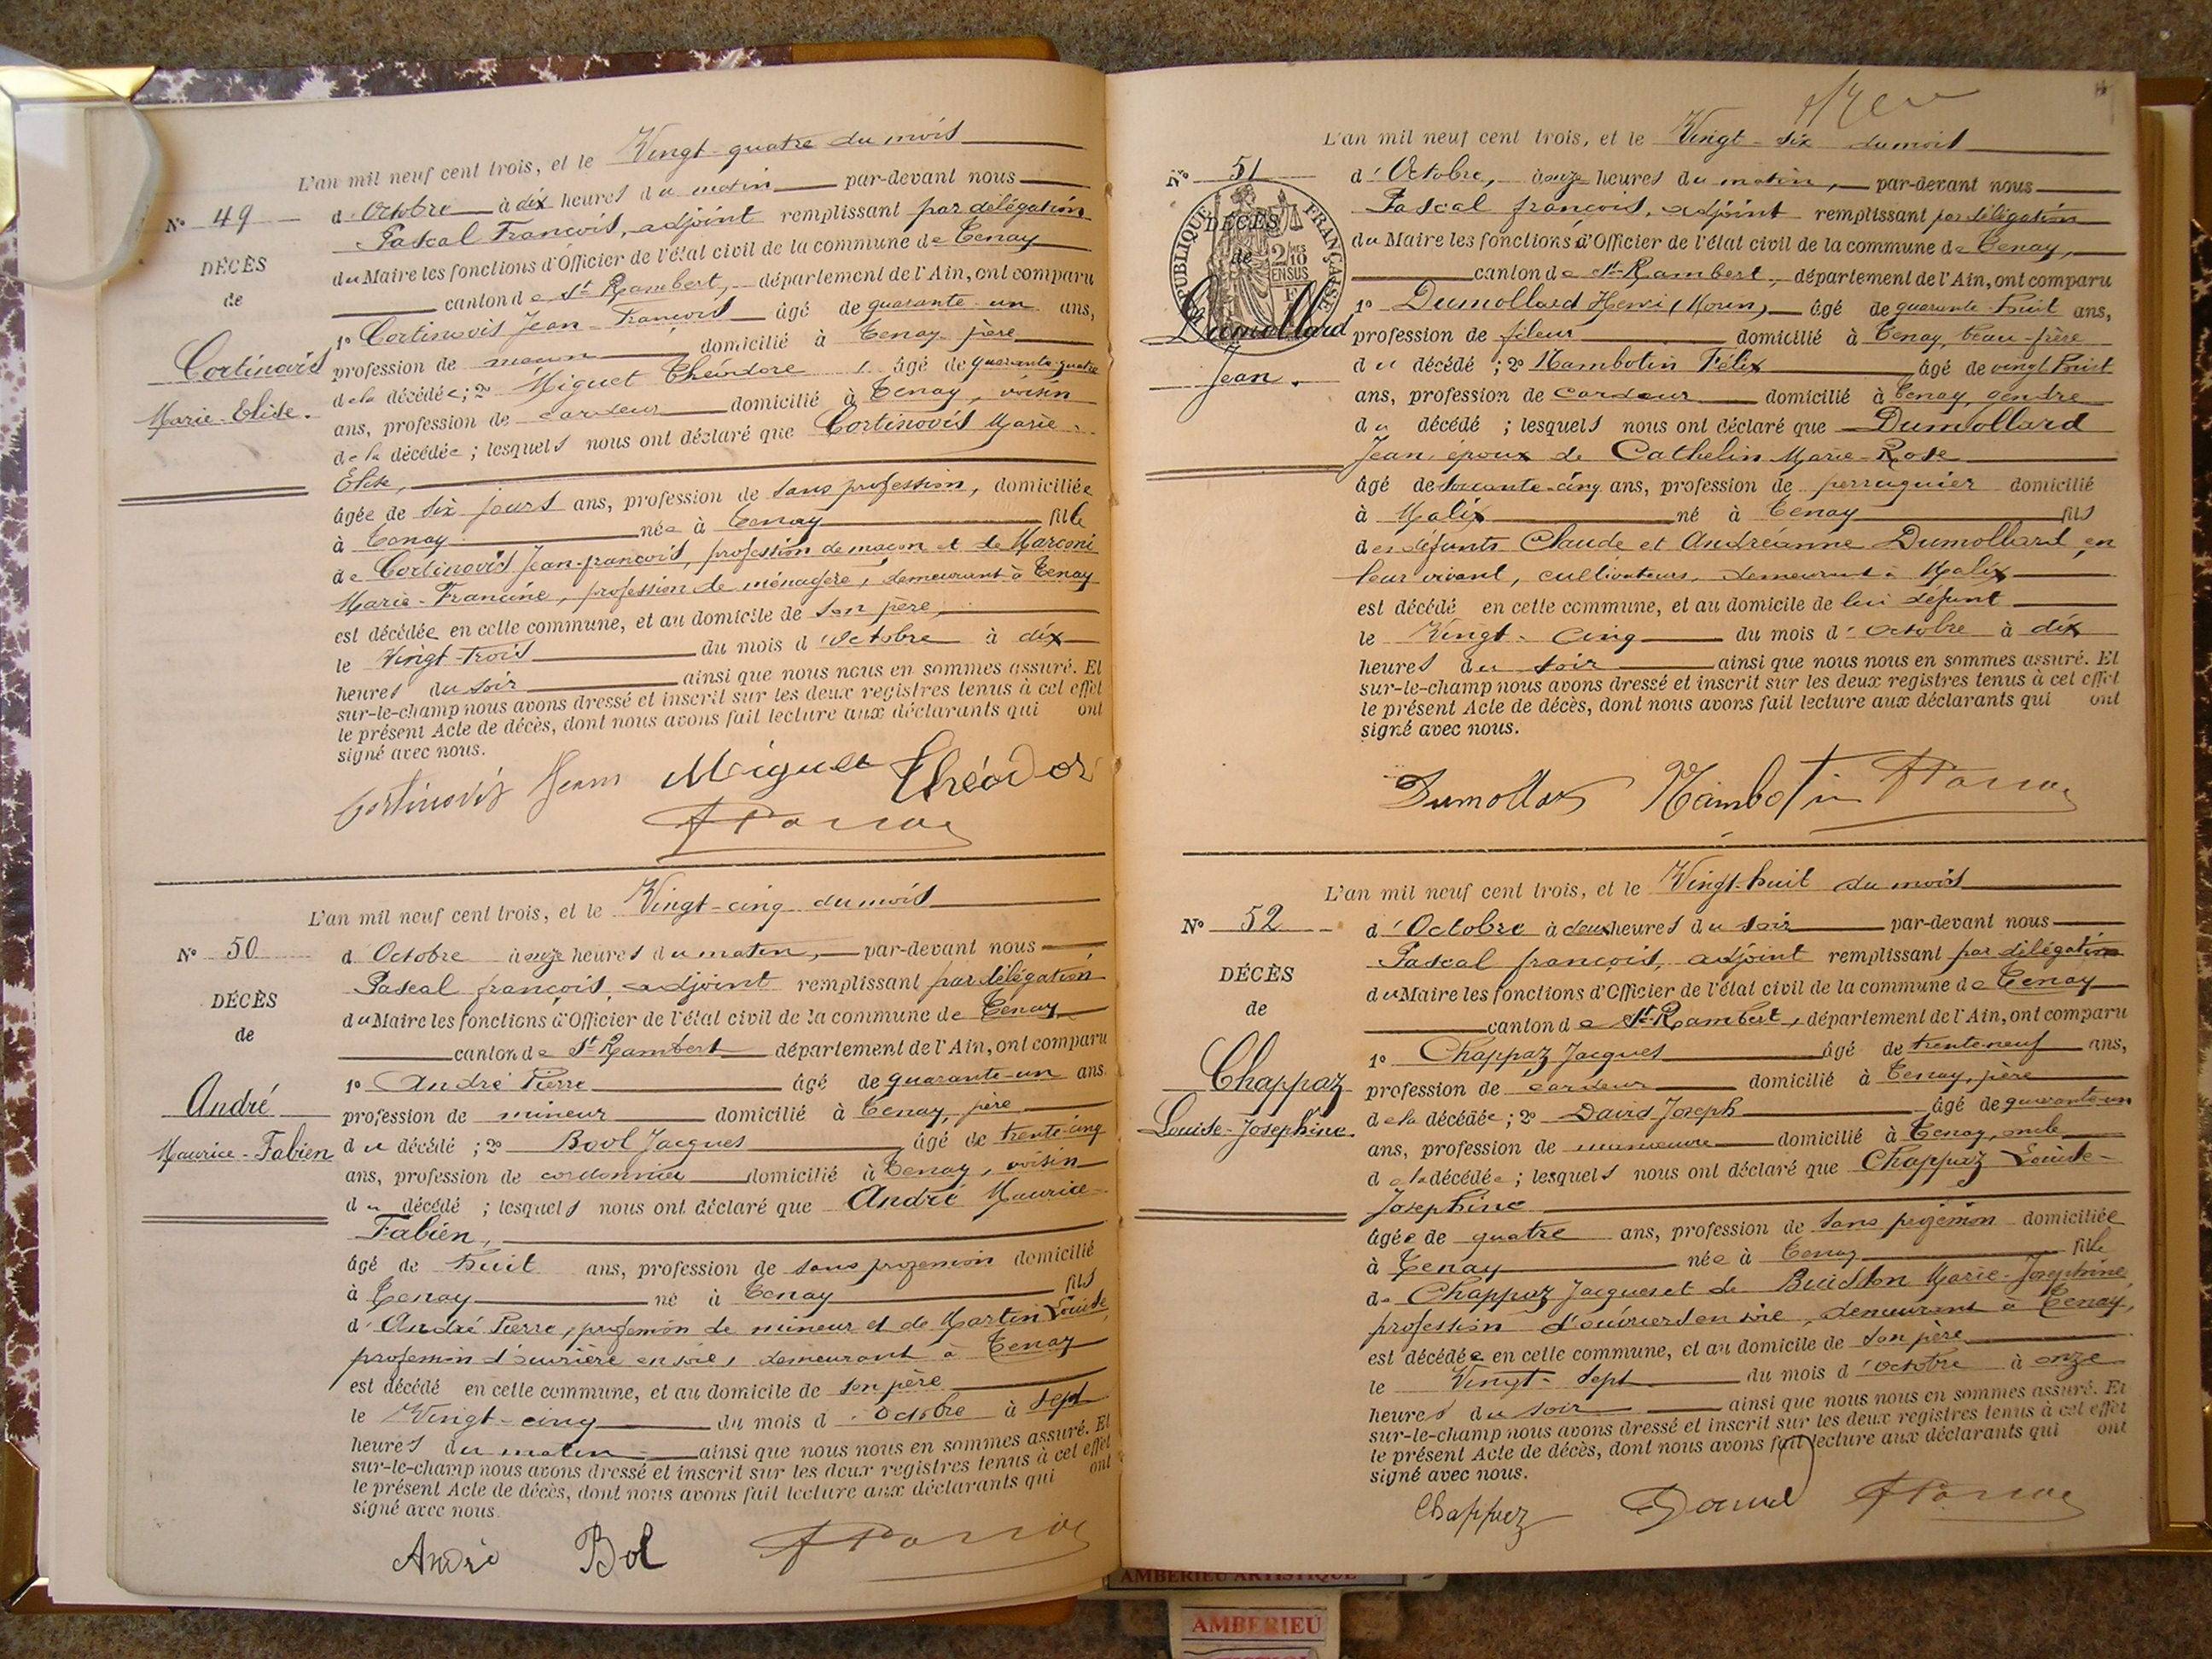 L'an mil neuf cent trois, et le Vingt-quatre du mois
N° 49
d'Octobre à dix heures du matin par-devant nous
Pascal François, adjoint remplissant par délégation
DÉCÈS
du Maire les fonctions d'Officier de l'état civil de la commune de Tenay
de
canton de St Rambert, département de l'Ain, ont comparu
1° Cortinovis Jean-François âgé de quarante-un ans,
Cortinovis
profession de maçon domicilié à Tenay, père
Marie-Elise.
de la décédée; 2° Miguet Théodore, âgé de quarante-quatre
ans, profession de cardeur domicilié à Tenay, voisin
de la décédée; lesquels nous ont déclaré que Cortinovis Marie-
Elise,
âgée de six jours ans, profession de sans profession, domiciliée
à Tenay née à Tenay fille
de Cortinovis Jean-françois, profession de maçon et de Marconi
Marie-Francine, profession de ménagère, demeurant à Tenay
est décédée en cette commune, et au domicile de son père,
le Vingt-trois du mois d'octobre à dix
heures du soir ainsi que nous nous en sommes assuré. Et
sur-le-champ nous avons dressé et inscrit sur les deux registres tenus à cet effet
le présent Acte de décès, dont nous avons fait lecture aux déclarants qui ont
signé avec nous.
Cortinovis Jean Miguet Théodor
L'an mil neuf cent trois, et le Vingt-cinq du mois
N° 50
d'Octobre à onze heures du matin, par-devant nous
Pascal françois, adjoint remplissant par délégation
DÉCÈS
du Maire les fonctions d'Officier de l'état civil de la commune de Tenay
de
canton de St Rambert département de l'Ain, ont comparu
1° André Pierre âgé de quarante-un ans.
André
profession de mineur domicilié à Tenay, père
Maurice-Fabien
du décédé; 2° Bool Jacques âgé de trente-cinq
ans, profession de cordonnier domicilié à Tenay, voisin
du décédé; lesquels nous ont déclaré que André Maurice-
Fabien,
âgé de huit ans, profession de sans profession domicilié
à Tenay né à Tenay fils
d'André Pierre, profession de mineur et de Martin Louise,
profession d'ouvrière en soie, demeurant à Tenay
est décédé en cette commune, et au domicile de son père
le Vingt-cinq du mois d'octobre à sept
heures du matin ainsi que nous nous en sommes assuré. Et
sur-le-champ nous avons dressé et inscrit sur les deux registres tenus à cet effet
le présent Acte de décès, dont nous avons fait lecture aux déclarants qui ont
signé avec nous.
André Bol
L'an mil neuf cent trois, et le Vingt-six du mois
N° 51
d'Octobre, à onze heures du matin, par-devant nous
Pascal françois, adjoint remplissant par délégation
RÉPUBLIQUE FRANÇAISE
DÉCÈS
du Maire les fonctions d'Officier de l'état civil de la commune de Tenay,
de
canton de St-Rambert, département de l'Ain, ont comparu
1° Dumollard Henri (Morin), âgé de quarante-huit ans,
Dumollard
profession de fileur domicilié à Tenay, beau-frère
Jean.
du décédé; 2° Mambotin Félix âgé de vingt huit
ans, profession de cardeur domicilié à Tenay, gendre
du décédé; lesquels nous ont déclaré que Dumollard
Jean époux de Cathelin Marie-Rose
âgé de soixante-cinq ans, profession de perruquier domicilié
à Malix né à Tenay fils
des défunts Claude et Andréanne Dumollard, en
leur vivant, cultivateurs, demeurant à Malix
est décédé en cette commune, et au domicile de lui défunt
le Vingt-cinq du mois d'octobre à dix
heures du soir ainsi que nous nous en sommes assuré. Et
sur-le-champ nous avons dressé et inscrit sur les deux registres tenus à cet effet
le présent Acte de décès, dont nous avons fait lecture aux déclarants qui ont
signé avec nous.
Dumollard Mambotin
L'an mil neuf cent trois, et le Vingt-huit du mois
N° 52
d'Octobre à deux heures du soir par-devant nous
Pascal françois, adjoint remplissant par délégation
DÉCÈS
du Maire les fonctions d'Officier de l'état civil de la commune de Tenay
de
canton de St-Rambert, département de l'Ain, ont comparu
1° Chappaz Jacques âgé de trente-neuf ans,
Chappaz
profession de cardeur domicilié à Tenay, père
Louise-Josephine.
de la décédée; 2° David Joseph âgé de quarante-un
ans, profession de manœuvre domicilié à Tenay, oncle
de la décédée; lesquels nous ont déclaré que Chappaz Louise-
Josephine
âgée de quatre ans, profession de sans profession domiciliée
à Tenay née à Tenay fille
de Chappaz Jacques et de Marie-Josephine,
profession d'ouvriers en soie, demeurant à Tenay,
est décédée en cette commune, et au domicile de son père
le Vingt-sept du mois d'octobre à onze
heures du soir ainsi que nous nous en sommes assuré. Et
sur-le-champ nous avons dressé et inscrit sur les deux registres tenus à cet effet
le présent Acte de décès, dont nous avons fait lecture aux déclarants qui ont
signé avec nous.
Chappaz David
AMBERIEU ARTISTIQUE
AMBERIEU